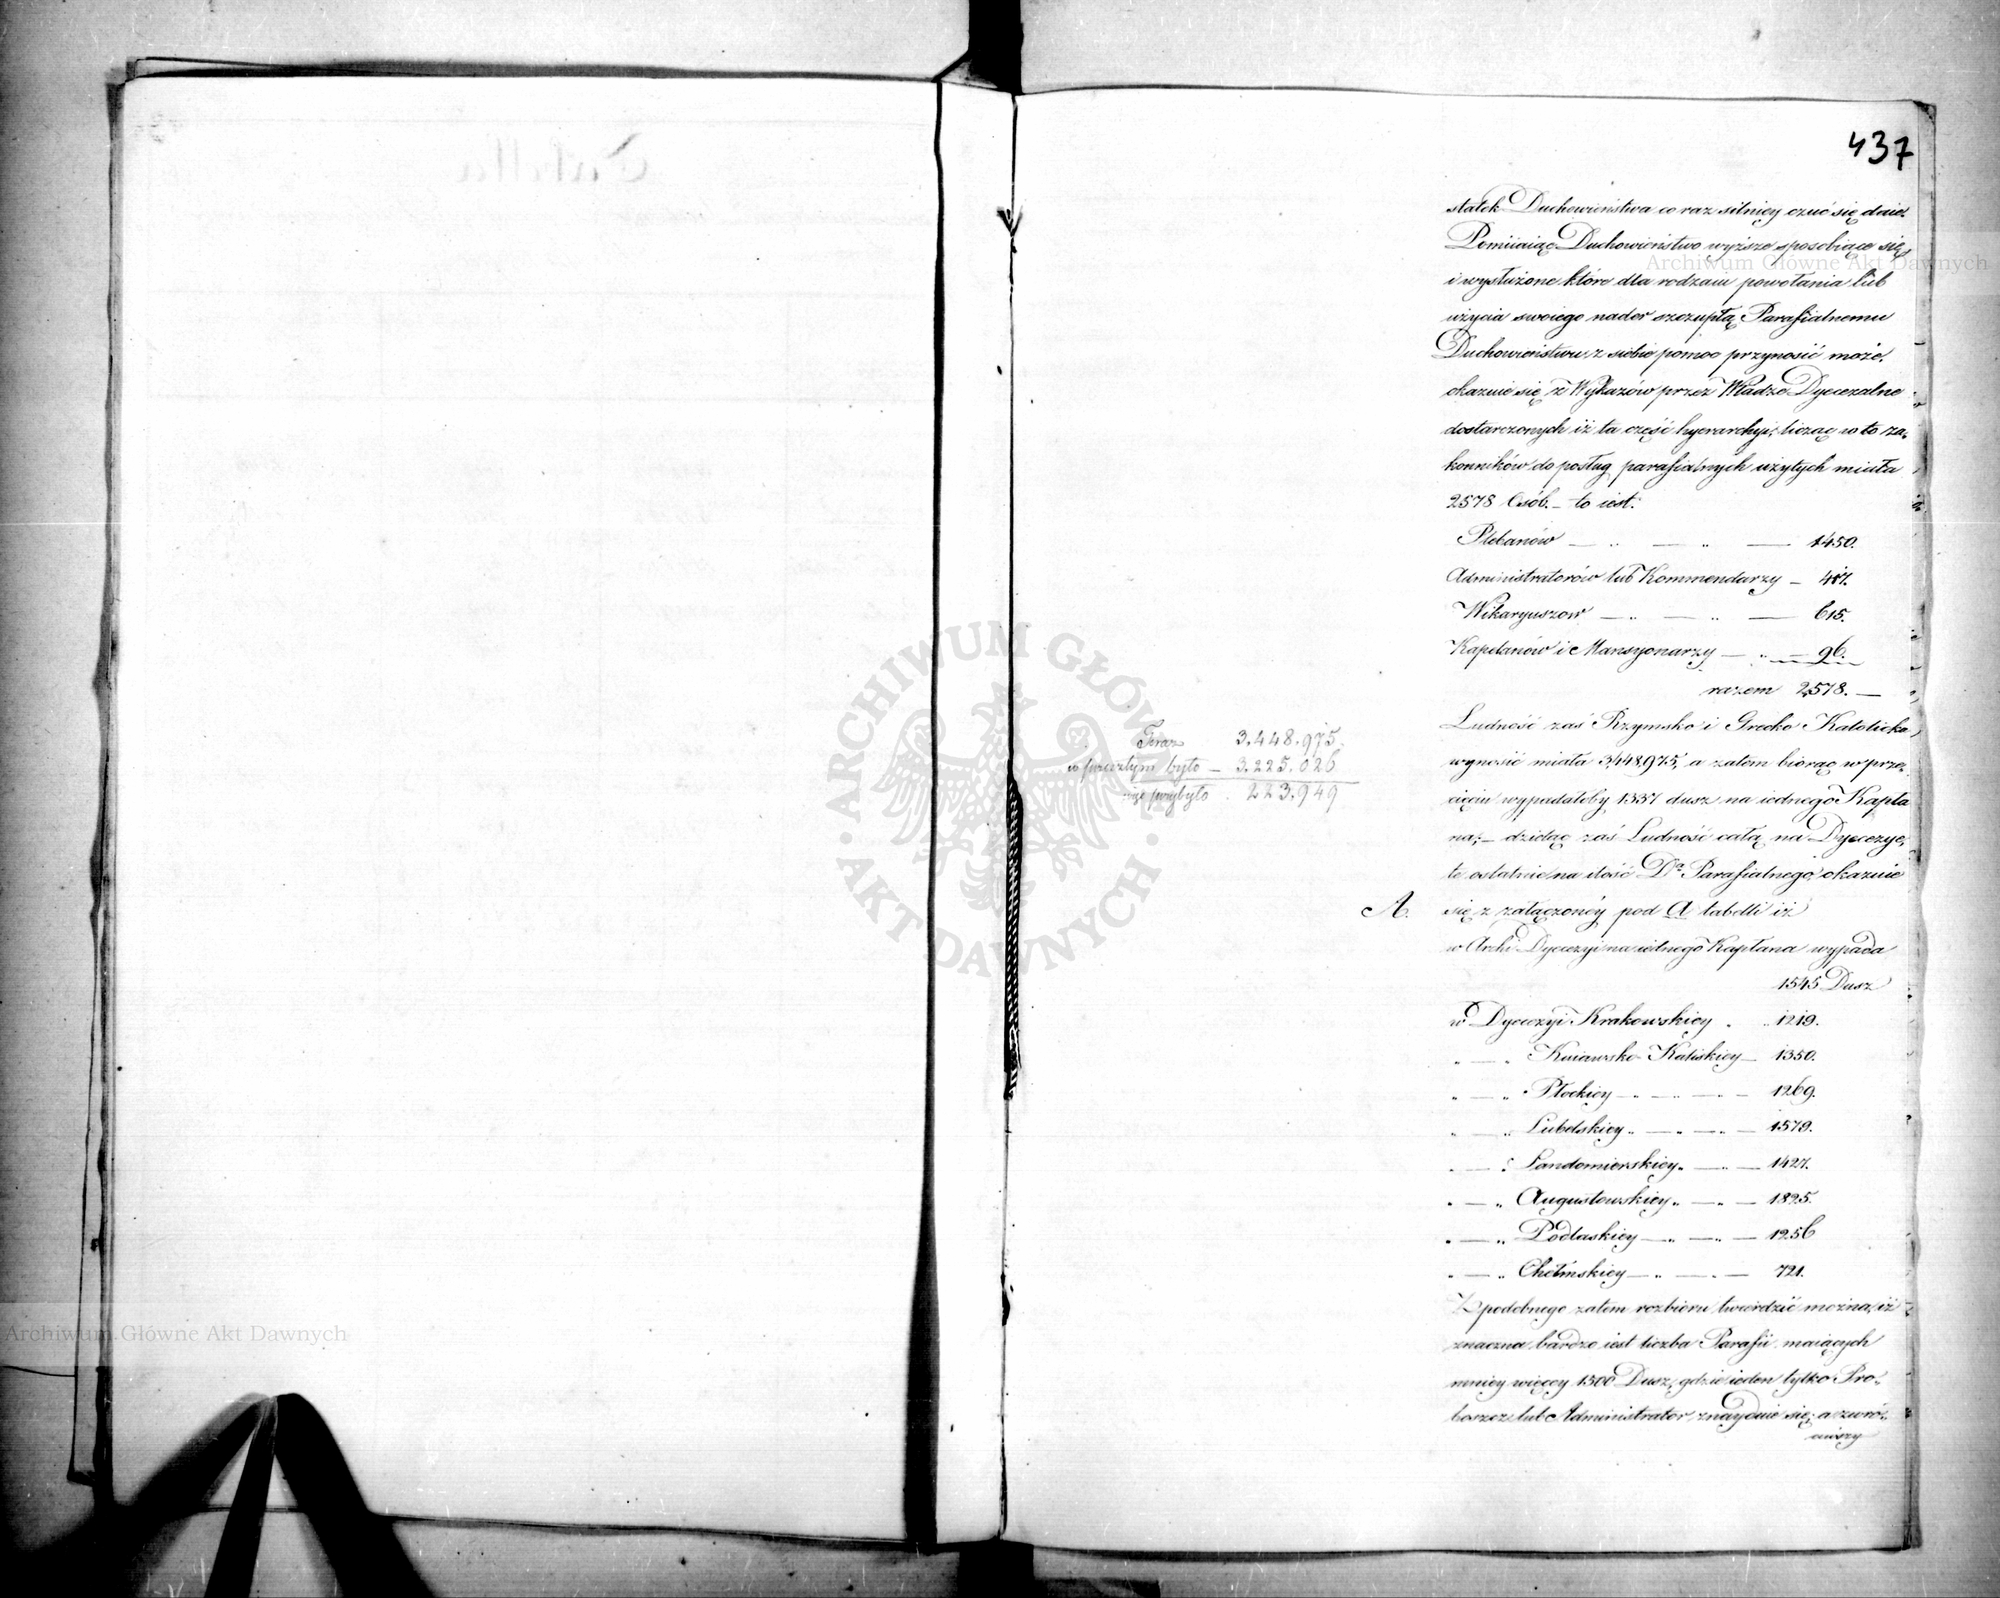 437
statek Duchowieństwa co raz silniey czuć się daie.
Pomiiaiąc Duchowieństwo wyższe sposobiące się
i wysłużone które dla rodzaiu powołania lub
użycia swoiego nader szczupłą Parafialnemu
Duchowieństwu z siebie pomoc przynosić może,
okazuie się z Wykazów przez Władze Dyecezalne
dostarczonych iż ta część hyerarchyi, licząc w to za-
konników do posług parafialnych użytych miała
2578 Osób. – to iest:
Plebanów — „ — „ — 1450.
Administratorów lub Kommendarzy – 417.
Wikaryuszow — „ — „ — 615.
Kapelanów i Mansyonarzy — „ — 96.
razem 2,578. —
Ludność zaś Rzymsko i Grecko Katolicka
wynosić miała 3,448,975, a zatem biorąc w prze-
cięciu wypadałoby 1337 dusz na iednego Kapła
na; – dzieląc zaś Ludność całą na Dyecezye,
te ostatnie na ilość Dª Parafialnego, okazuie
A. się z załączoney pod A tabelli iż
w Archi-Dyecezyi na iednego Kapłana wypada
1545 Dusz
w Dyecezyi Krakowskiey . „ 1219.
„ — „ Kuiawsko-Kaliskiey — 1350.
„ — „ Płockiey — „ — „ — 1269.
„ — „ Lubelskiey „ — „ — „ — 1579.
„ — „ Sandomierskiey „ — „ — 1427.
„ — „ Augustowskiey „ — „ — 1825.
„ — „ Podlaskiey — „ — „ — 1256
„ — „ Chełmskiey — „ — „ — 721.
Z podobnego zatem rozbioru twierdzić można, iż
znaczna bardzo iest liczba Parafii maiących
mniey więcey 1500 Dusz, gdzie ieden tylko Pro-
boszcz lub Administrator, znayduie się; a zwró-
ciwszy
Teraz 3.448.975.
w przeszłym było – 3.225.026
więc przybyło . 223.949
Archiwum Główne Akt Dawnych
Archiwum Główne Akt Dawnych
ARCHIWUM GŁÓWNE · AKT DAWNYCH ·